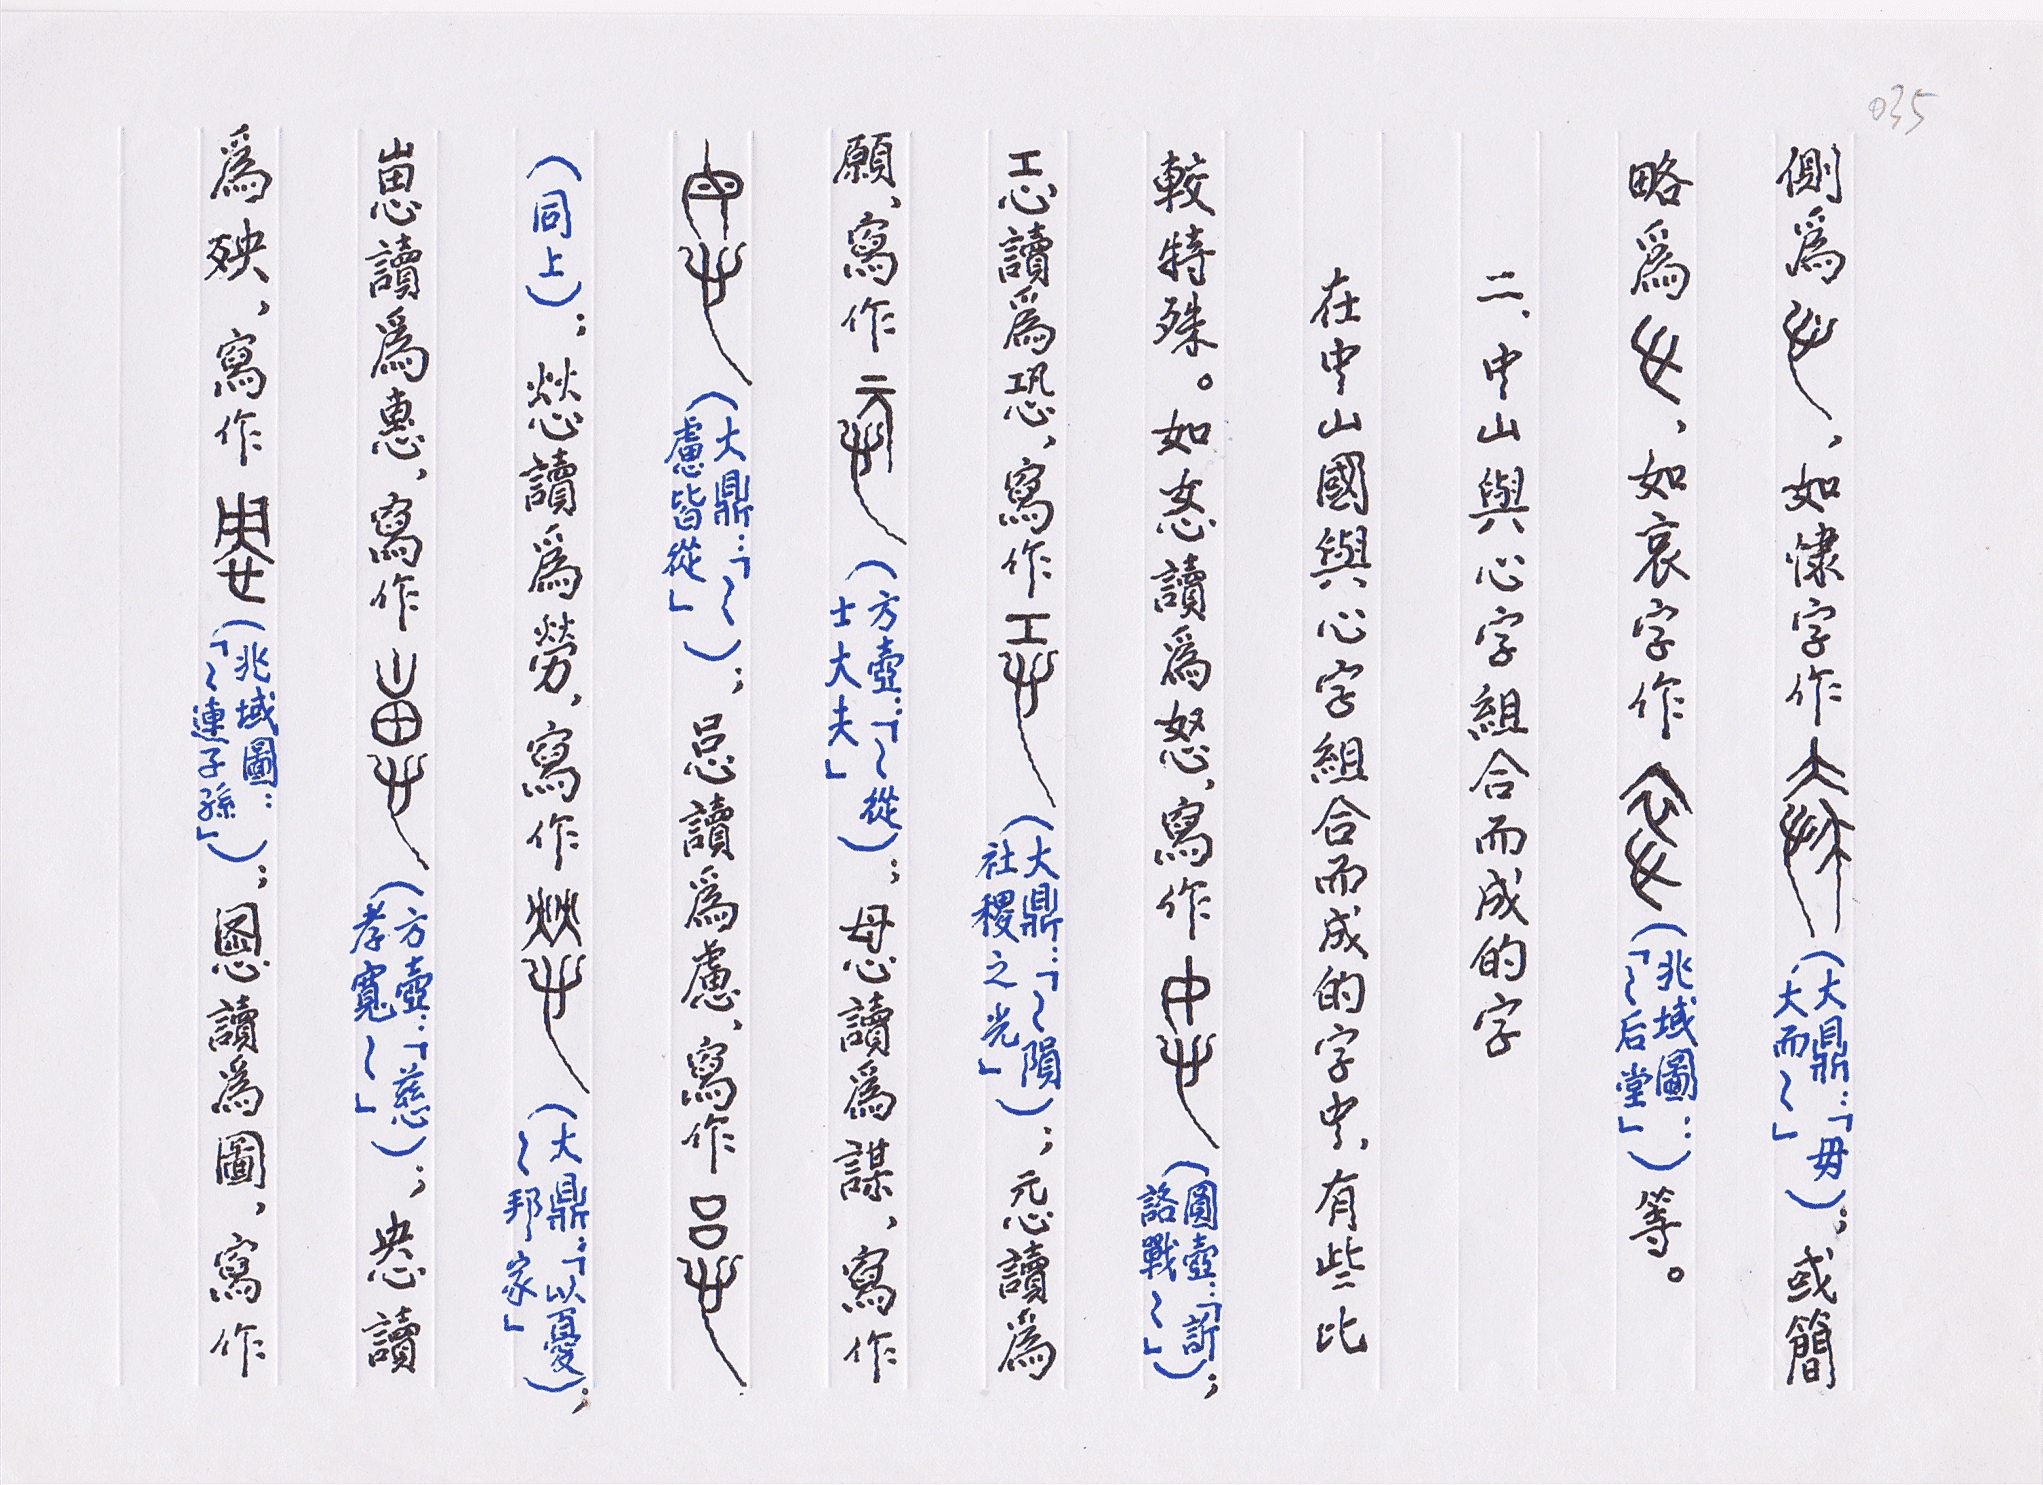 035
側爲，如悽字作（大鼎：「毋大而〜」）；或簡
略爲，如哀字作（兆域圖：「〜后堂」）等。
二、中山與心字組合而成的字
在中山國與心字組合而成的字中，有些比
較特殊。如㤅讀爲怒，寫作（圓壺：「訢詻戰〜」）；
㤨讀爲恐，寫作（大鼎：「〜隕社稷之光」）；忨讀爲
願，寫作（方壺：「〜從士大夫」）；讀爲謀，寫作
（大鼎：「〜慮皆從」）；讀爲慮，寫作
（同上）；讀爲勞，寫作（大鼎：「以憂〜邦家」）；
讀爲惠，寫作（方壺：「慈孝寬〜」）；怏讀
爲殃，寫作（兆域圖：「〜連子孫」）；讀爲圖，寫作